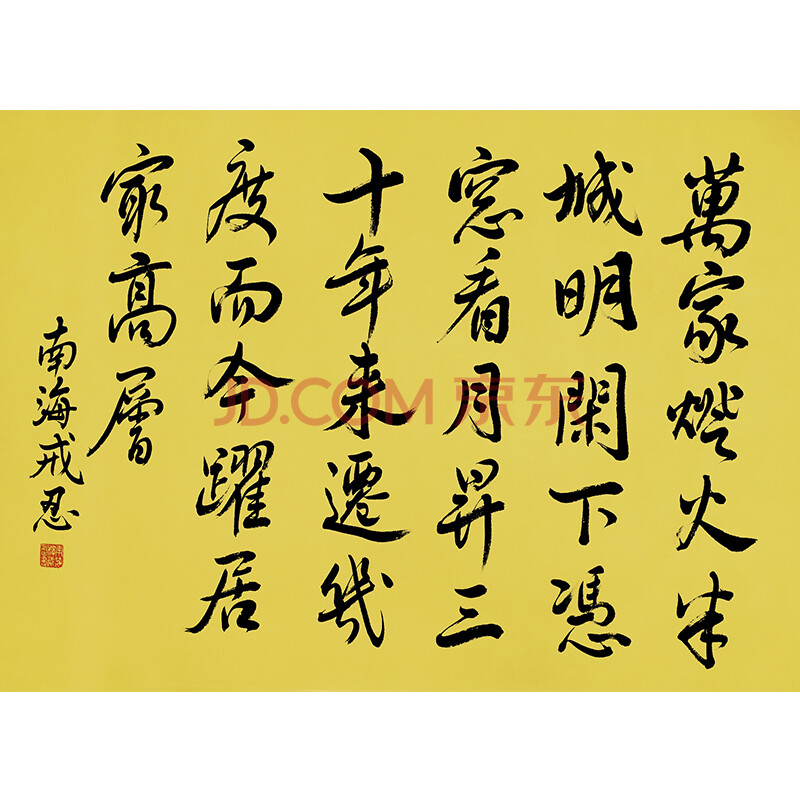 萬家燈火半
城明閑下憑
窓看月昇三
十年来遷幾
度而今躍居
最高層
南海戒忍
JD.COM 京东